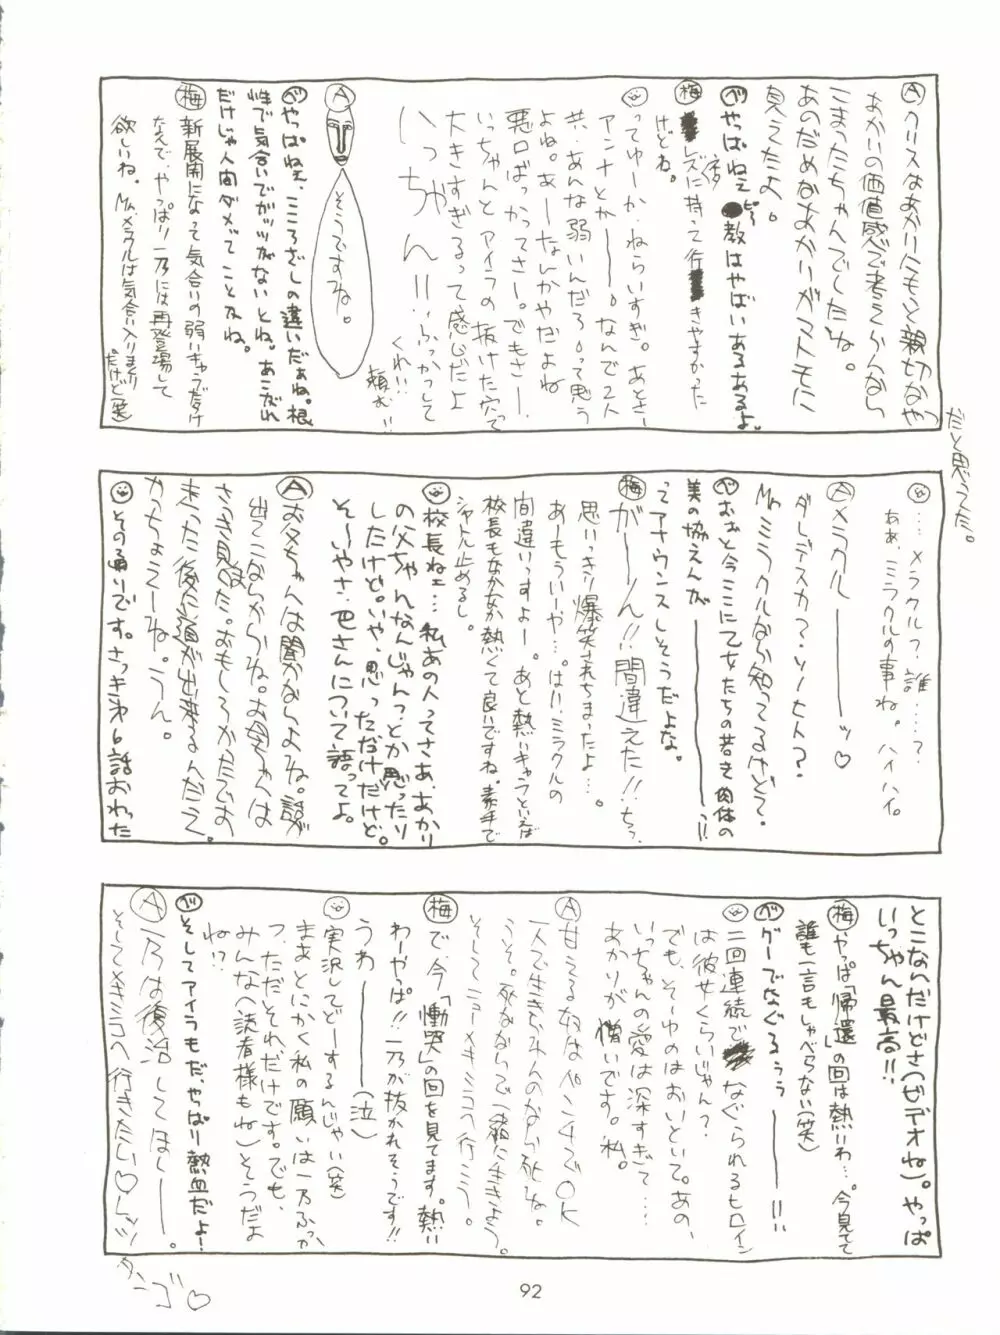 Ⓐクリスはあかりにもンと親切なやつ
だと思ってた。
あかりの価値感で考えらんなら
こまったちゃんでしたね。
あのだめなあかりがマトモに
見えたよ。
べやっぱねェ ピー●教はやばいあるあるよ。
梅 ズに持って行きやすかった
けどね。
ってゆーか、ねらいすぎ。あとさー
アンナとかーー。なんで2人
共、あんな弱いんだろーって思う
よね。あーなんかやだよね
悪口ばっかってさー。でもさー、
いっちゃんとアイラの抜けた穴って
大きすぎるって感じだよ
いっちゃん!!ふっかつして
くれ!! 頼む!!
Ⓐ
そうですね。
べやっぱねェ、こころざしの違いだぁね。根
性で気合いでガッツがないとね。あこがれ
だけじゃ人間ダメってことよね。
梅 新展開になって気合いの弱いキャラだらけ
なんで、やっぱり一乃には再登場して
欲しいね。Mr.メラクルは気合い入りまくり
だけど(笑)
……メラクル?誰……?
ああ、ミラクルの事ね。ハイハイ。
Ⓐメラクルーーーーッ♡
ダレデスカ?ソノヒト?
Mr.ミラクルなら知ってるけどて。
べおぉっと今ここに乙女たちの若き肉体の
美の協えんがーーーーー!!
ってアナウンスしそうだよな。
梅 がーーん!!間違えた!!ちっ、
思いっきり爆笑されちまったよ…。
あーもういーや…。はい、ミラクルの
間違いっすよー。あと熱いキャラといえば
校長もなかなか熱くて良いですね。素手で
シャトル止めるし。
校長ねェ…私あの人ってさぁ、あかり
の父ちゃんなんじゃんっとか思ったり
したけど。いや、思っただけだけど。
そーいやさ、巴さんについて語ってよ。
Ⓐお父ちゃんは聞かないよね。話が
出てこないからね。お母ちゃんは
さっき見たはた。おもしろかったでよ
走った後に道が出来るんだって。
かっちょえーね。うん。
その通りです。さっき第6話おわった
とこなんだけどさ(ビデオね)。やっぱ
いっちゃん最高!!
梅 やっぱ「帰還」の回は熱いわ…。今見てて
誰も一言もしゃべらない(笑)
べグーでなぐるぅぅーーーー!!
二回連続でなぐられるヒロイン
は彼女くらいじゃん?
でも、そーゆのはおいといて。あの、
いっちゃんの愛は深すぎて……
あかりが憎いです。私。
Ⓐ甘えるな奴はパンチでOK
一人で生きらんのなら死ね。
うそ。死なないで一緒に生きよう。
そしてニューメキシコへ行こう。
梅 で、今「慟哭」の回を見てます。熱い
わーやっぱ!!一乃が抜かれそうです!!
うわーーーーー(泣)
実況してどーするんじゃい(笑)
まあとにかく私の願いは一乃ふっか
つ、ただそれだけです。でも、
みんな(読者様もね)そうだよ
ね!?
べそしてアイラもだ、やっぱり熱血だよ!
Ⓐ一乃は復活してほしーー。
そしてメキシコへ行きたい♡レッツ
ゴー♡
92